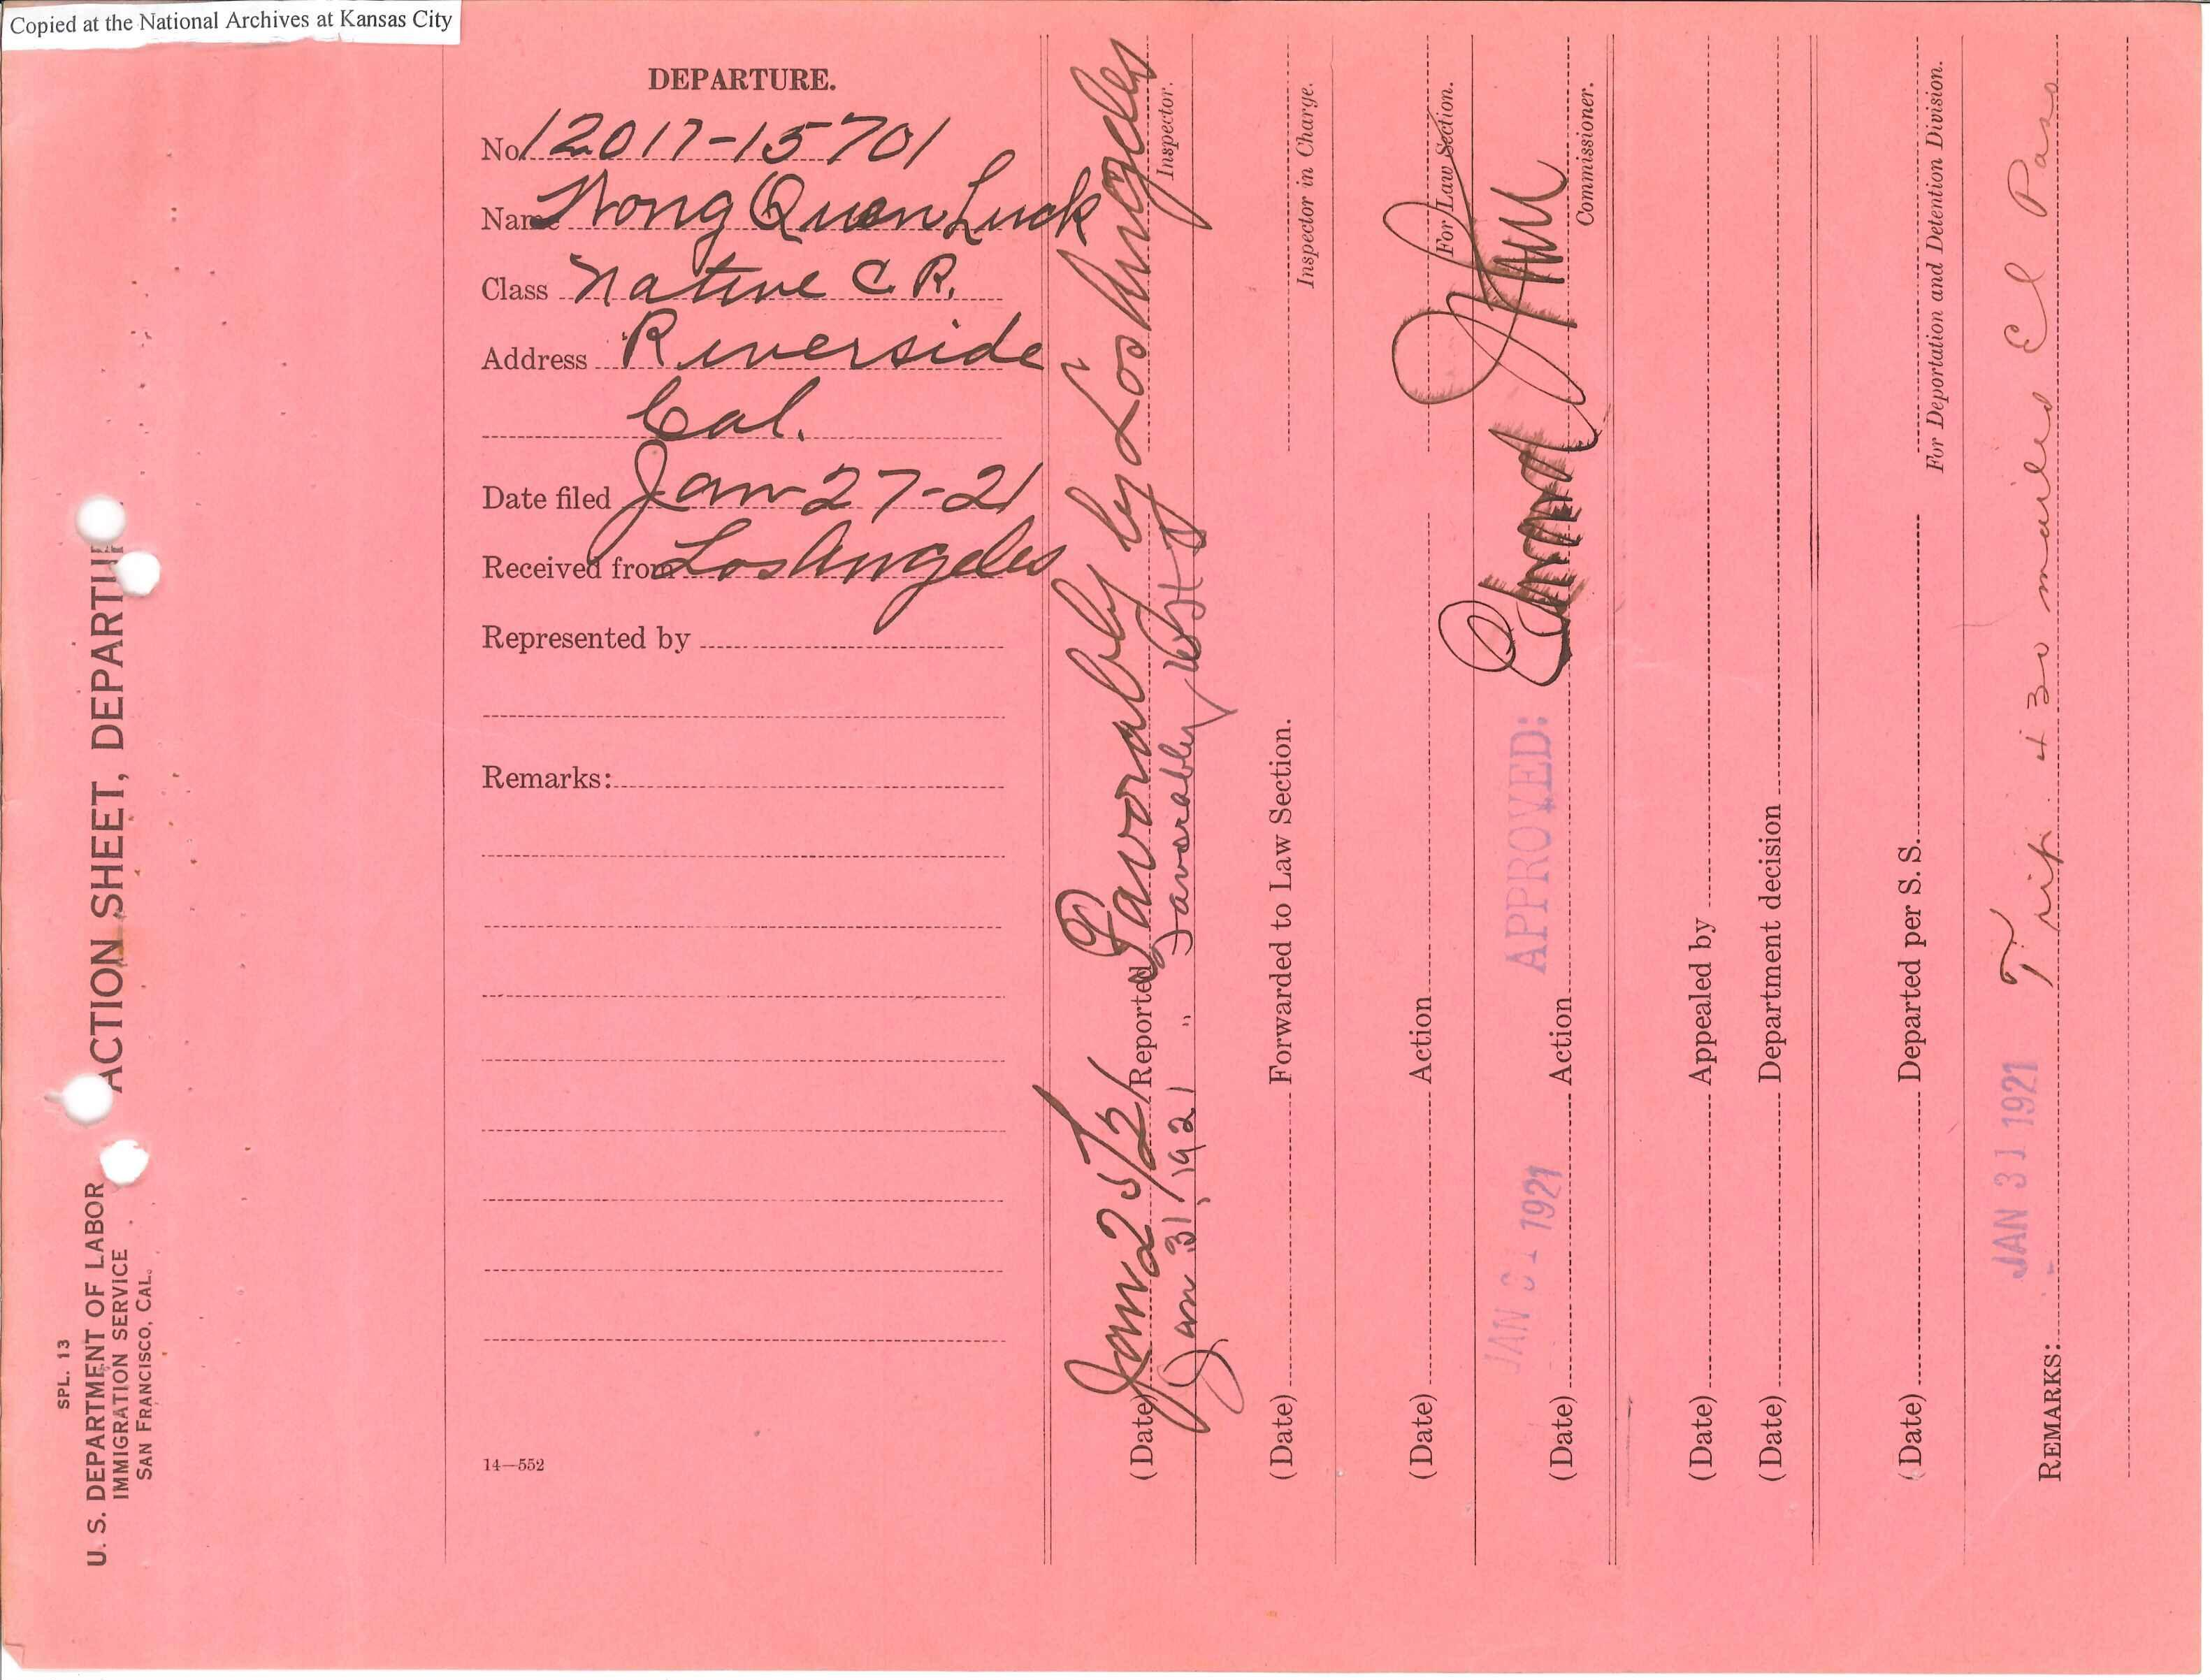 Copied at the National Archives at Kansas City
SPL. 13
U. S. DEPARTMENT OF LABOR
IMMIGRATION SERVICE
SAN FRANCISCO, CAL.
ACTION SHEET, DEPARTU
DEPARTURE.
No. 12017-15701
Name Wong Quen Luck
Class Native C. R.
Address Riverside
Cal.
Date filed Jan-27-21
Received from Los Angeles
Represented by
Remarks:
14—552
(Date) Jan 25/21 Reported Favorably by Los Angeles
Inspector.
Jan 31, 1921 " favorably
(Date) Forwarded to Law Section.
Inspector in Charge.
(Date) Action
For Law Section.
(Date) JAN 31 1921 Action APPROVED:
Commissioner.
(Date) Appealed by
(Date) Department decision
(Date) Departed per S. S.
For Deportation and Detention Division.
REMARKS: JAN 31 1921 Trip. + 30 mailed El Paso